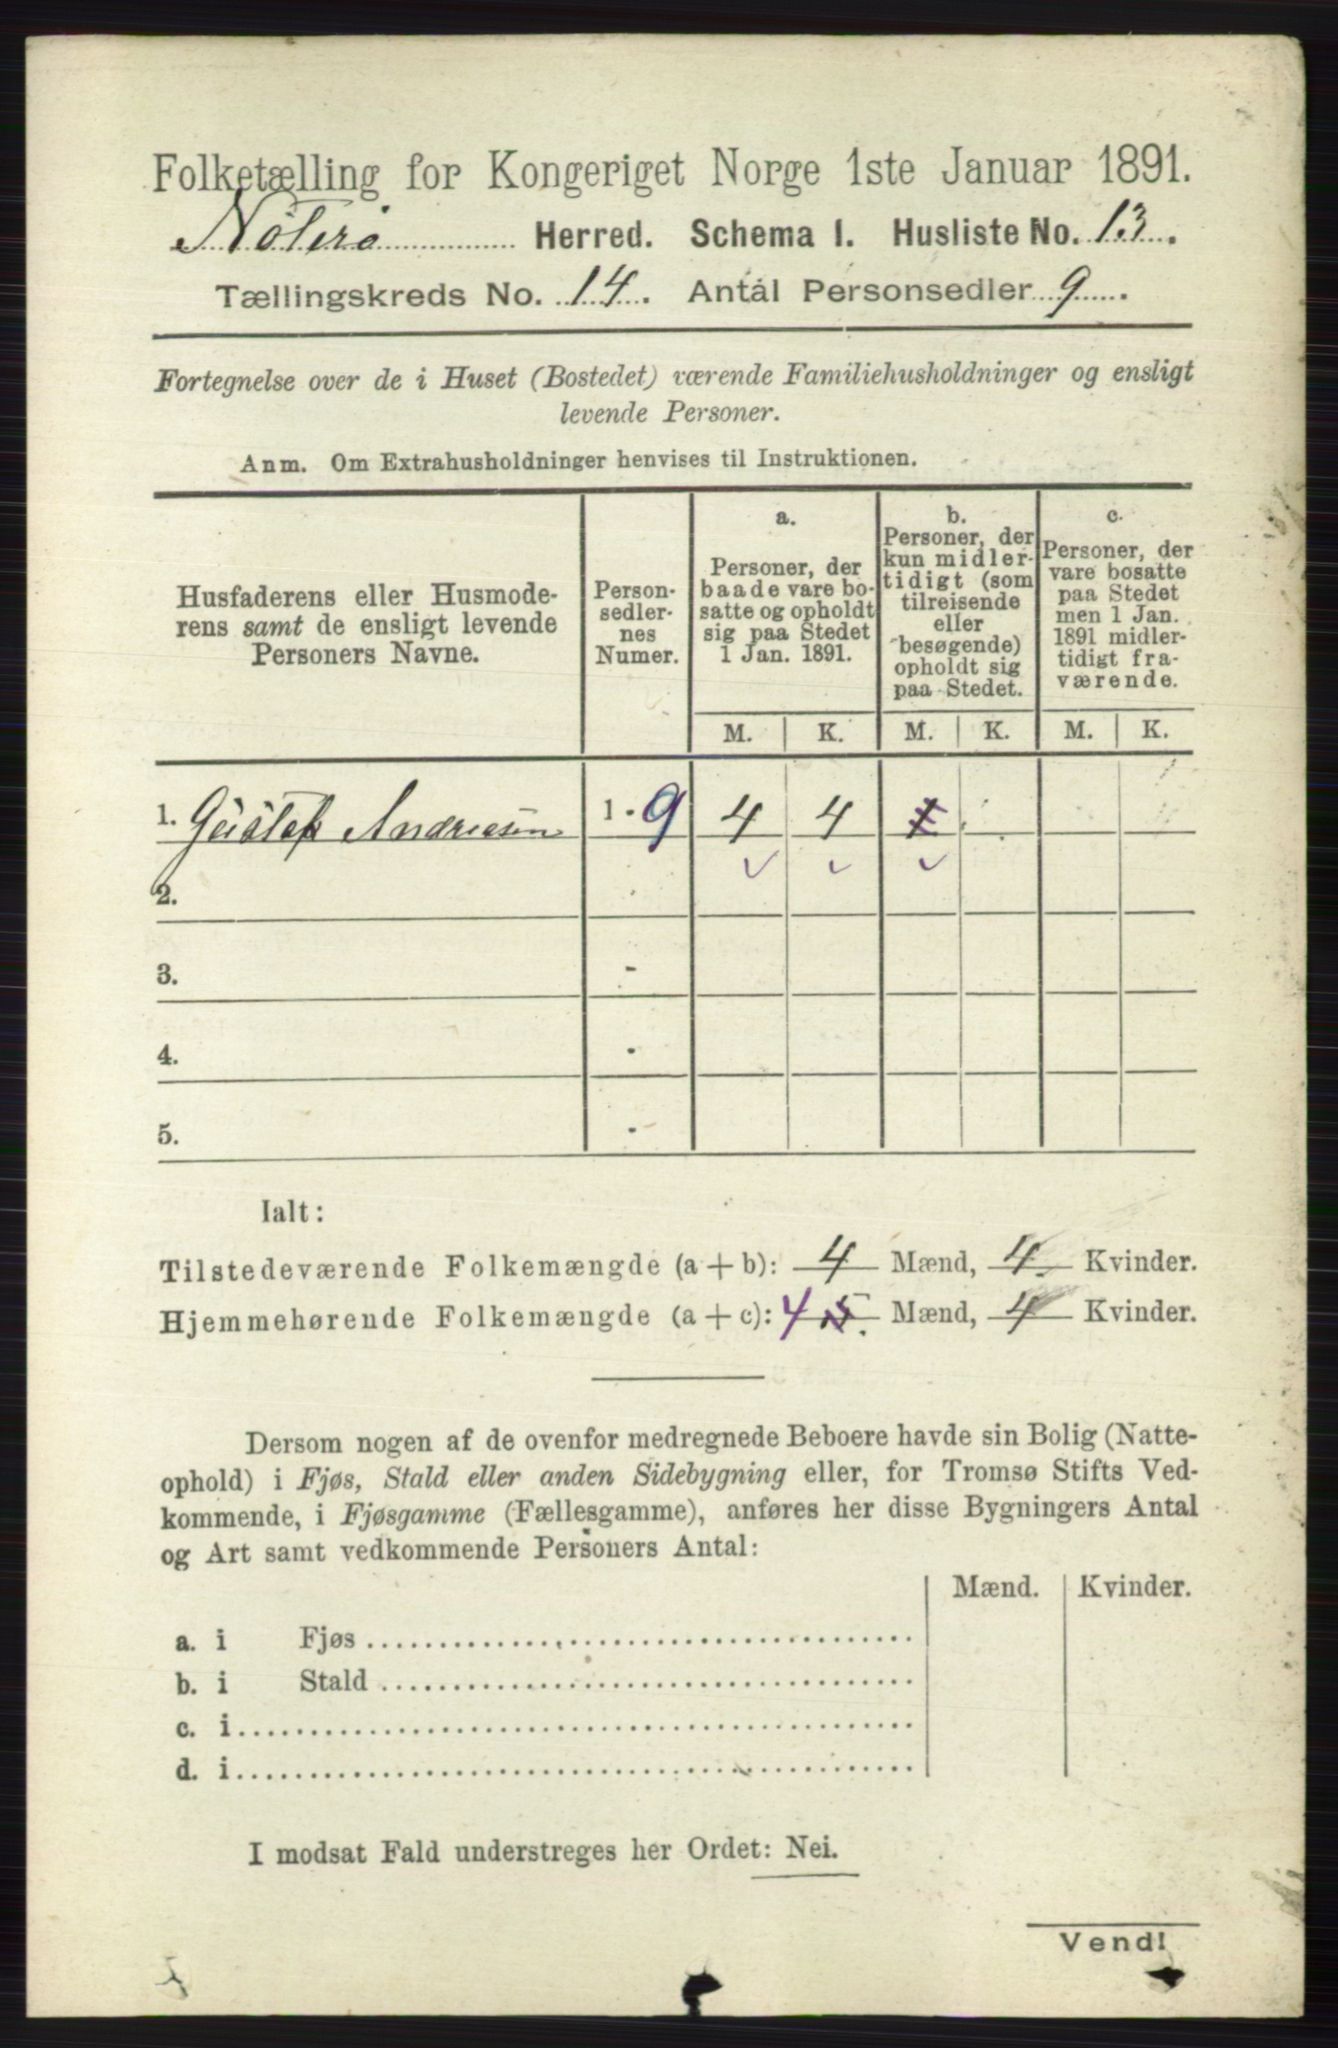 Folketælling for Kongeriget Norge 1ste Januar 1891.
Nöterö Herred. Schema I. Husliste No. 13.
Tællingskreds No. 14. Antal Personsedler 9.
Fortegnelse over de i Huset (Bostedet) værende Familiehusholdninger og ensligt
levende Personer.
Anm. Om Extrahusholdninger henvises til Instruktionen.
Husfaderens eller Husmode-
rens samt de ensligt levende
Personers Navne.
Person-
sedler-
nes
Numer.
a.
Personer, der
baade vare bo-
satte og opholdt
sig paa Stedet
1 Jan. 1891.
b.
Personer, der
kun midler-
tidigt (som
tilreisende
eller
besøgende)
opholdt sig
paa Stedet.
c.
Personer, der
vare bosatte
paa Stedet
men 1 Jan.
1891 midler-
tidigt fra-
værende.
M. K. M. K. M. K.
1. Gustaf Andriesen 1 - 9 4 4 1
2.
3. -
4. -
5. -
Ialt:
Tilstedeværende Folkemængde (a + b): 4 Mænd, 4 Kvinder.
Hjemmehørende Folkemængde (a + c): 4 5. Mænd, 4 Kvinder.
Dersom nogen af de ovenfor medregnede Beboere havde sin Bolig (Natte-
ophold) i Fjøs, Stald eller anden Sidebygning eller, for Tromsø Stifts Ved-
kommende, i Fjøsgamme (Fællesgamme), anføres her disse Bygningers Antal
og Art samt vedkommende Personers Antal:
Mænd. Kvinder.
a. i Fjøs
b. i Stald
c. i
d. i
I modsat Fald understreges her Ordet: Nei.
Vend!